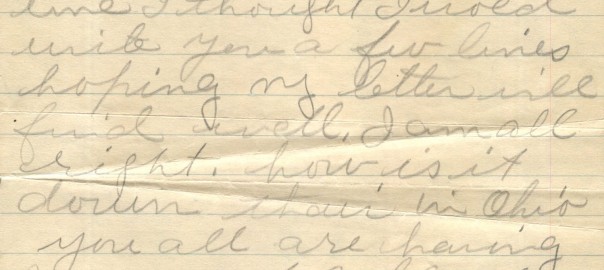 time I thought I wold
write you a few lines
hoping my letter will
find well, I am all
right. how is it
down thair in Ohio
you all are having